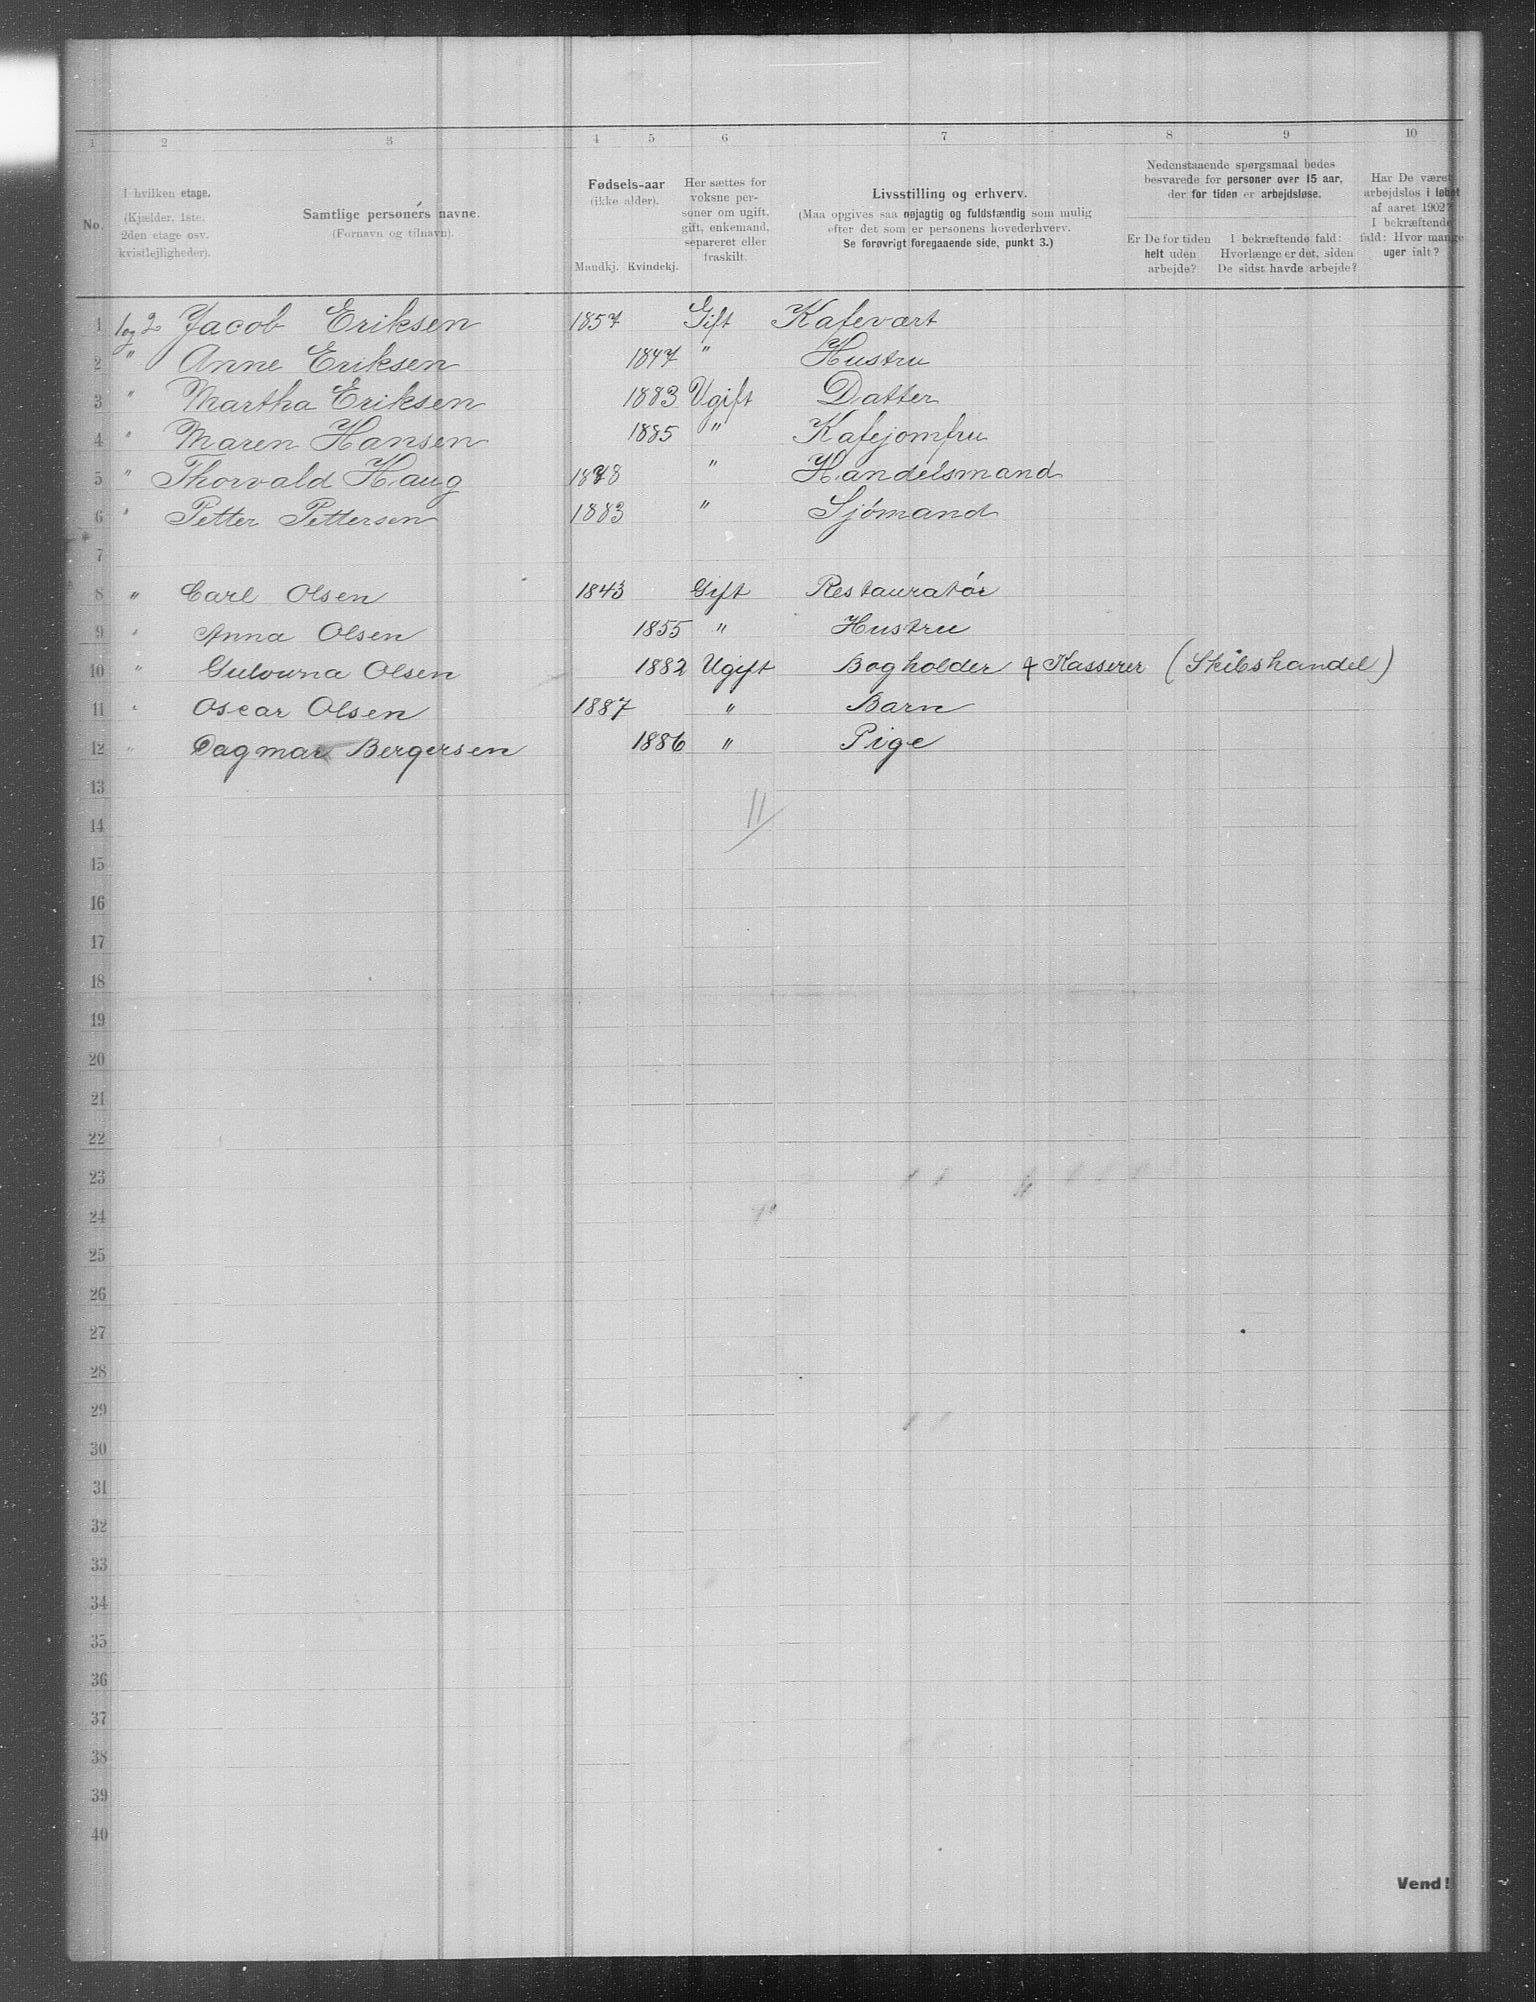 1 2 3 4 5 6 7 8 9 10
No.
I hvilken etage.
(Kjælder, 1ste,
2den etage osv.
kvistlejligheder).
Samtlige personers navne.
(Fornavn og tilnavn).
Fødsels-aar
(ikke alder).
Mandkj. Kvindekj.
Her sættes for
voksne per-
soner om ugift,
gift, enkemand,
separeret eller
fraskilt.
Livsstilling og erhverv.
(Maa opgives saa nøjagtig og fuldstændig som mulig
efter det som er personens hovederhverv.
Se forøvrigt foregaaende side, punkt 3.)
Nedenstaaende spørgsmaal bedes
besvarede for personer over 15 aar,
der for tiden er arbejdsløse.
Er De for tiden
helt uden
arbejde?
I bekræftende fald:
Hvorlænge er det, siden
De sidst havde arbejde?
Har De været
arbejdsløs i løbet
af aaret 1902?
I bekræftende
fald: Hvor mange
uger ialt?
1 1 og 2 Jacob Eriksen 1857 Gift Kafevært
2 " Anne Eriksen 1847 " Hustru
3 " Martha Eriksen 1883 Ugift Datter
4 " Maren Hansen 1885 " Kafejomfru
5 " Thorvald Haug 1878 " Handelsmand
6 " Petter Pettersen 1883 " Sjømand
7
8 " Carl Olsen 1843 Gift Restauratør
9 " Anna Olsen 1855 " Hustru
10 " Olsen 1882 Ugift Bogholder & Kasserer (Skibshandel)
11 " Oscar Olsen 1887 " Barn
12 " Dagmar Bergersen 1886 " Pige
13
11
14
15
16
17
18
19
20
21
22
23
24
25
26
27
28
29
30
31
32
33
34
35
36
37
38
39
40
Vend!